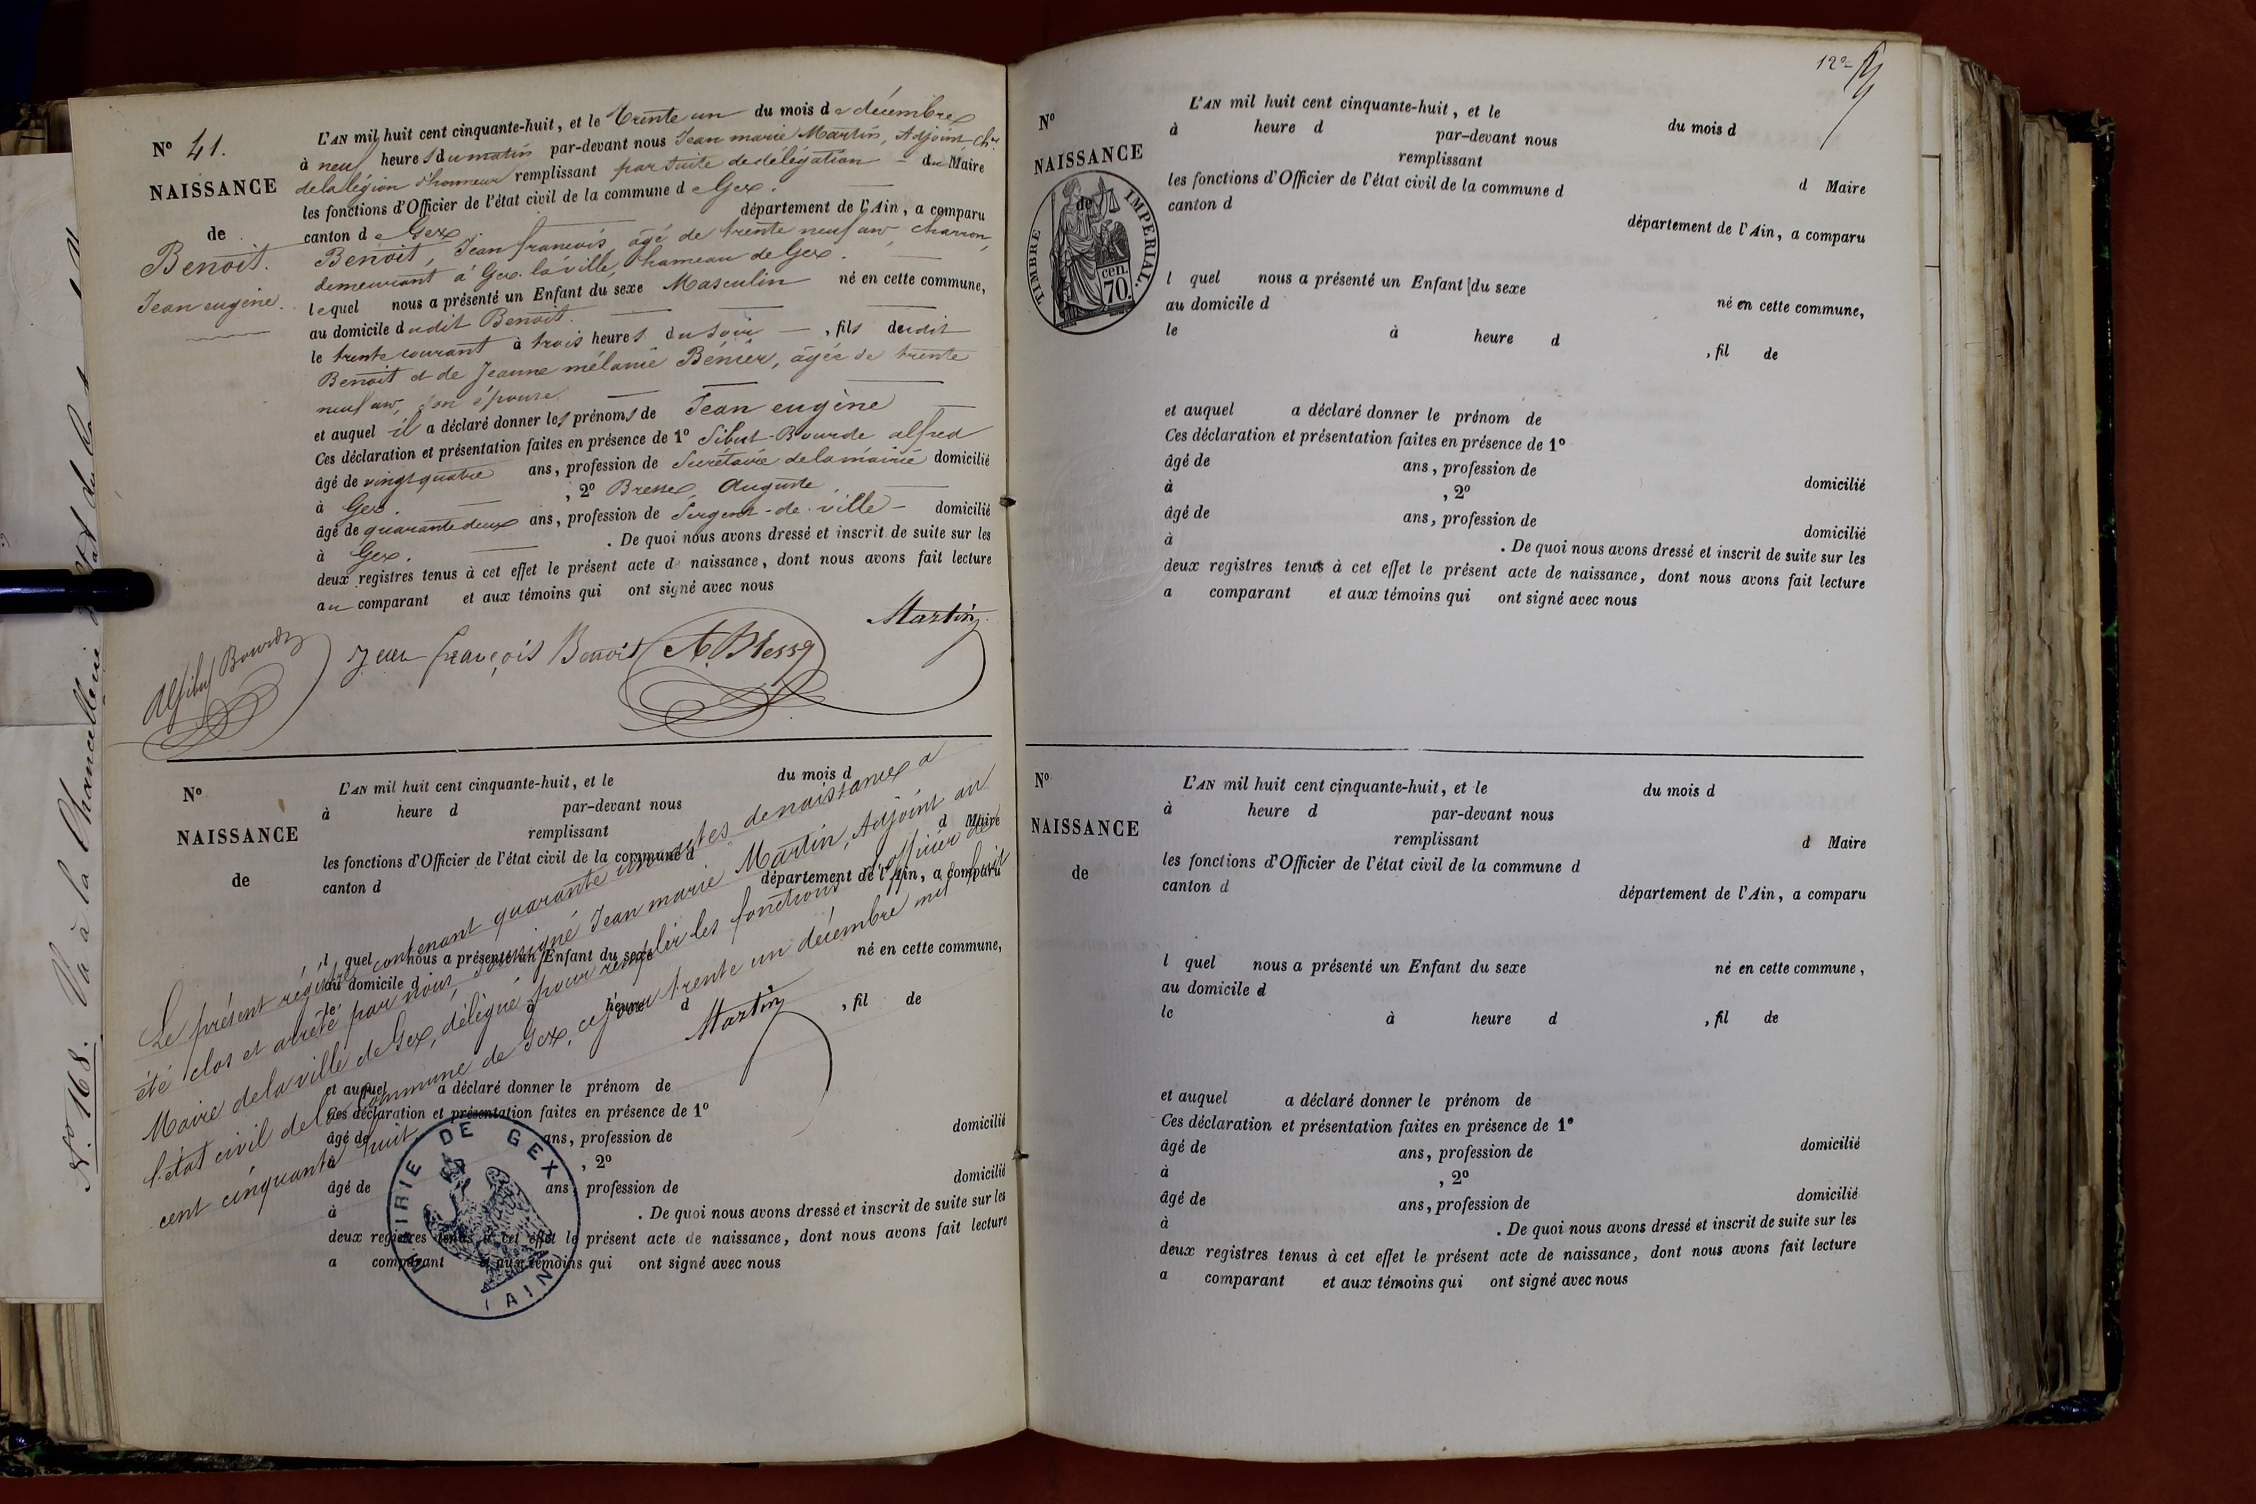 N° 41.
NAISSANCE
de
Benoit.
Jean eugène.
L'AN mil huit cent cinquante-huit, et le trente un du mois de décembre
à neuf heures du matin par-devant nous Jean marie Martin, Adjoint, Chr
de la légion d'honneur remplissant par suite de délégation du Maire
les fonctions d'Officier de l'état civil de la commune de Gex.
canton de Gex département de l'Ain, a comparu
Benoit, Jean françois, âgé de trente neuf ans, charron,
demeurant à Gex-la-ville, hameau de Gex.
lequel nous a présenté un Enfant du sexe Masculin né en cette commune,
au domicile dudit Benoit.
le trente courant à trois heures du soir, fils dudit
Benoit et de Jeanne mélanie Bénier, âgée de trente
neuf ans, son épouse.
et auquel il a déclaré donner les prénoms de Jean eugène
Ces déclaration et présentation faites en présence de 1° Sibut-Bourde alfred
âgé de vingt quatre ans, profession de Secrétaire de la mairie domicilié
à Gex. , 2° Bresse, Auguste
âgé de quarante deux ans, profession de Sergent-de-ville domicilié
à Gex. . De quoi nous avons dressé et inscrit de suite sur les
deux registres tenus à cet effet le présent acte de naissance, dont nous avons fait lecture
au comparant et aux témoins qui ont signé avec nous
Martin
Jean françois Benoit A. Bresse
ASibut Bourde
N°
NAISSANCE
de
L'AN mil huit cent cinquante-huit, et le du mois d
à heure d par-devant nous
remplissant d Maire
les fonctions d'Officier de l'état civil de la commune d
canton d département de l'Ain, a comparu
l quel nous a présenté un Enfant du sexe né en cette commune,
au domicile d
le à heure d , fil de
et auquel a déclaré donner le prénom de
Ces déclaration et présentation faites en présence de 1°
âgé de ans, profession de domicilié
à , 2°
âgé de ans, profession de domicilié
à . De quoi nous avons dressé et inscrit de suite sur les
deux registres tenus à cet effet le présent acte de naissance, dont nous avons fait lecture
a comparant et aux témoins qui ont signé avec nous
Le présent régistre contenant quarante un actes de naissances a
été clos et arrêté par nous, soussigné Jean marie Martin, Adjoint au
Maire de la ville de Gex, délégué pour remplir les fonctions d'officier de
l'état civil de la commune de Gex, ce jour trente un décembre mil huit
cent cinquante huit.
Martin
MAIRIE DE GEX
(AIN)
N° 168. Va à la Chancellerie
12e
N°
NAISSANCE
de
TIMBRE IMPERIAL.
70 cen.
L'AN mil huit cent cinquante-huit, et le du mois d
à heure d par-devant nous
remplissant d Maire
les fonctions d'Officier de l'état civil de la commune d
canton d département de l'Ain, a comparu
l quel nous a présenté un Enfant du sexe né en cette commune,
au domicile d
le à heure d , fil de
et auquel a déclaré donner le prénom de
Ces déclaration et présentation faites en présence de 1°
âgé de ans, profession de domicilié
à , 2°
âgé de ans, profession de domicilié
à . De quoi nous avons dressé et inscrit de suite sur les
deux registres tenus à cet effet le présent acte de naissance, dont nous avons fait lecture
a comparant et aux témoins qui ont signé avec nous
N°
NAISSANCE
de
L'AN mil huit cent cinquante-huit, et le du mois d
à heure d par-devant nous
remplissant d Maire
les fonctions d'Officier de l'état civil de la commune d
canton d département de l'Ain, a comparu
l quel nous a présenté un Enfant du sexe né en cette commune,
au domicile d
le à heure d , fil de
et auquel a déclaré donner le prénom de
Ces déclaration et présentation faites en présence de 1°
âgé de ans, profession de domicilié
à , 2°
âgé de ans, profession de domicilié
à . De quoi nous avons dressé et inscrit de suite sur les
deux registres tenus à cet effet le présent acte de naissance, dont nous avons fait lecture
a comparant et aux témoins qui ont signé avec nous